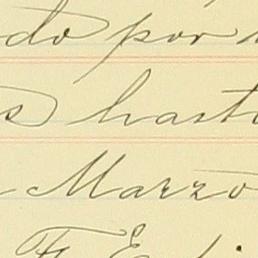 do por
s hasta
Marzo